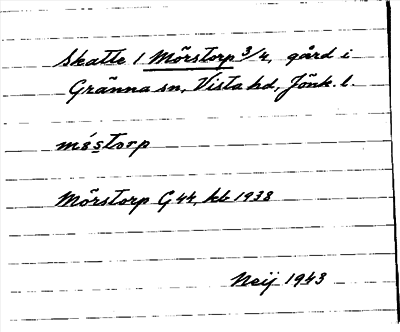 Skatte 1 Mörstorp 3/4, gård i
Gränna sn, Vista hd, Jönk. l.
mó̀storp
Mörstorp G 44, kb 1938
Neij 1943